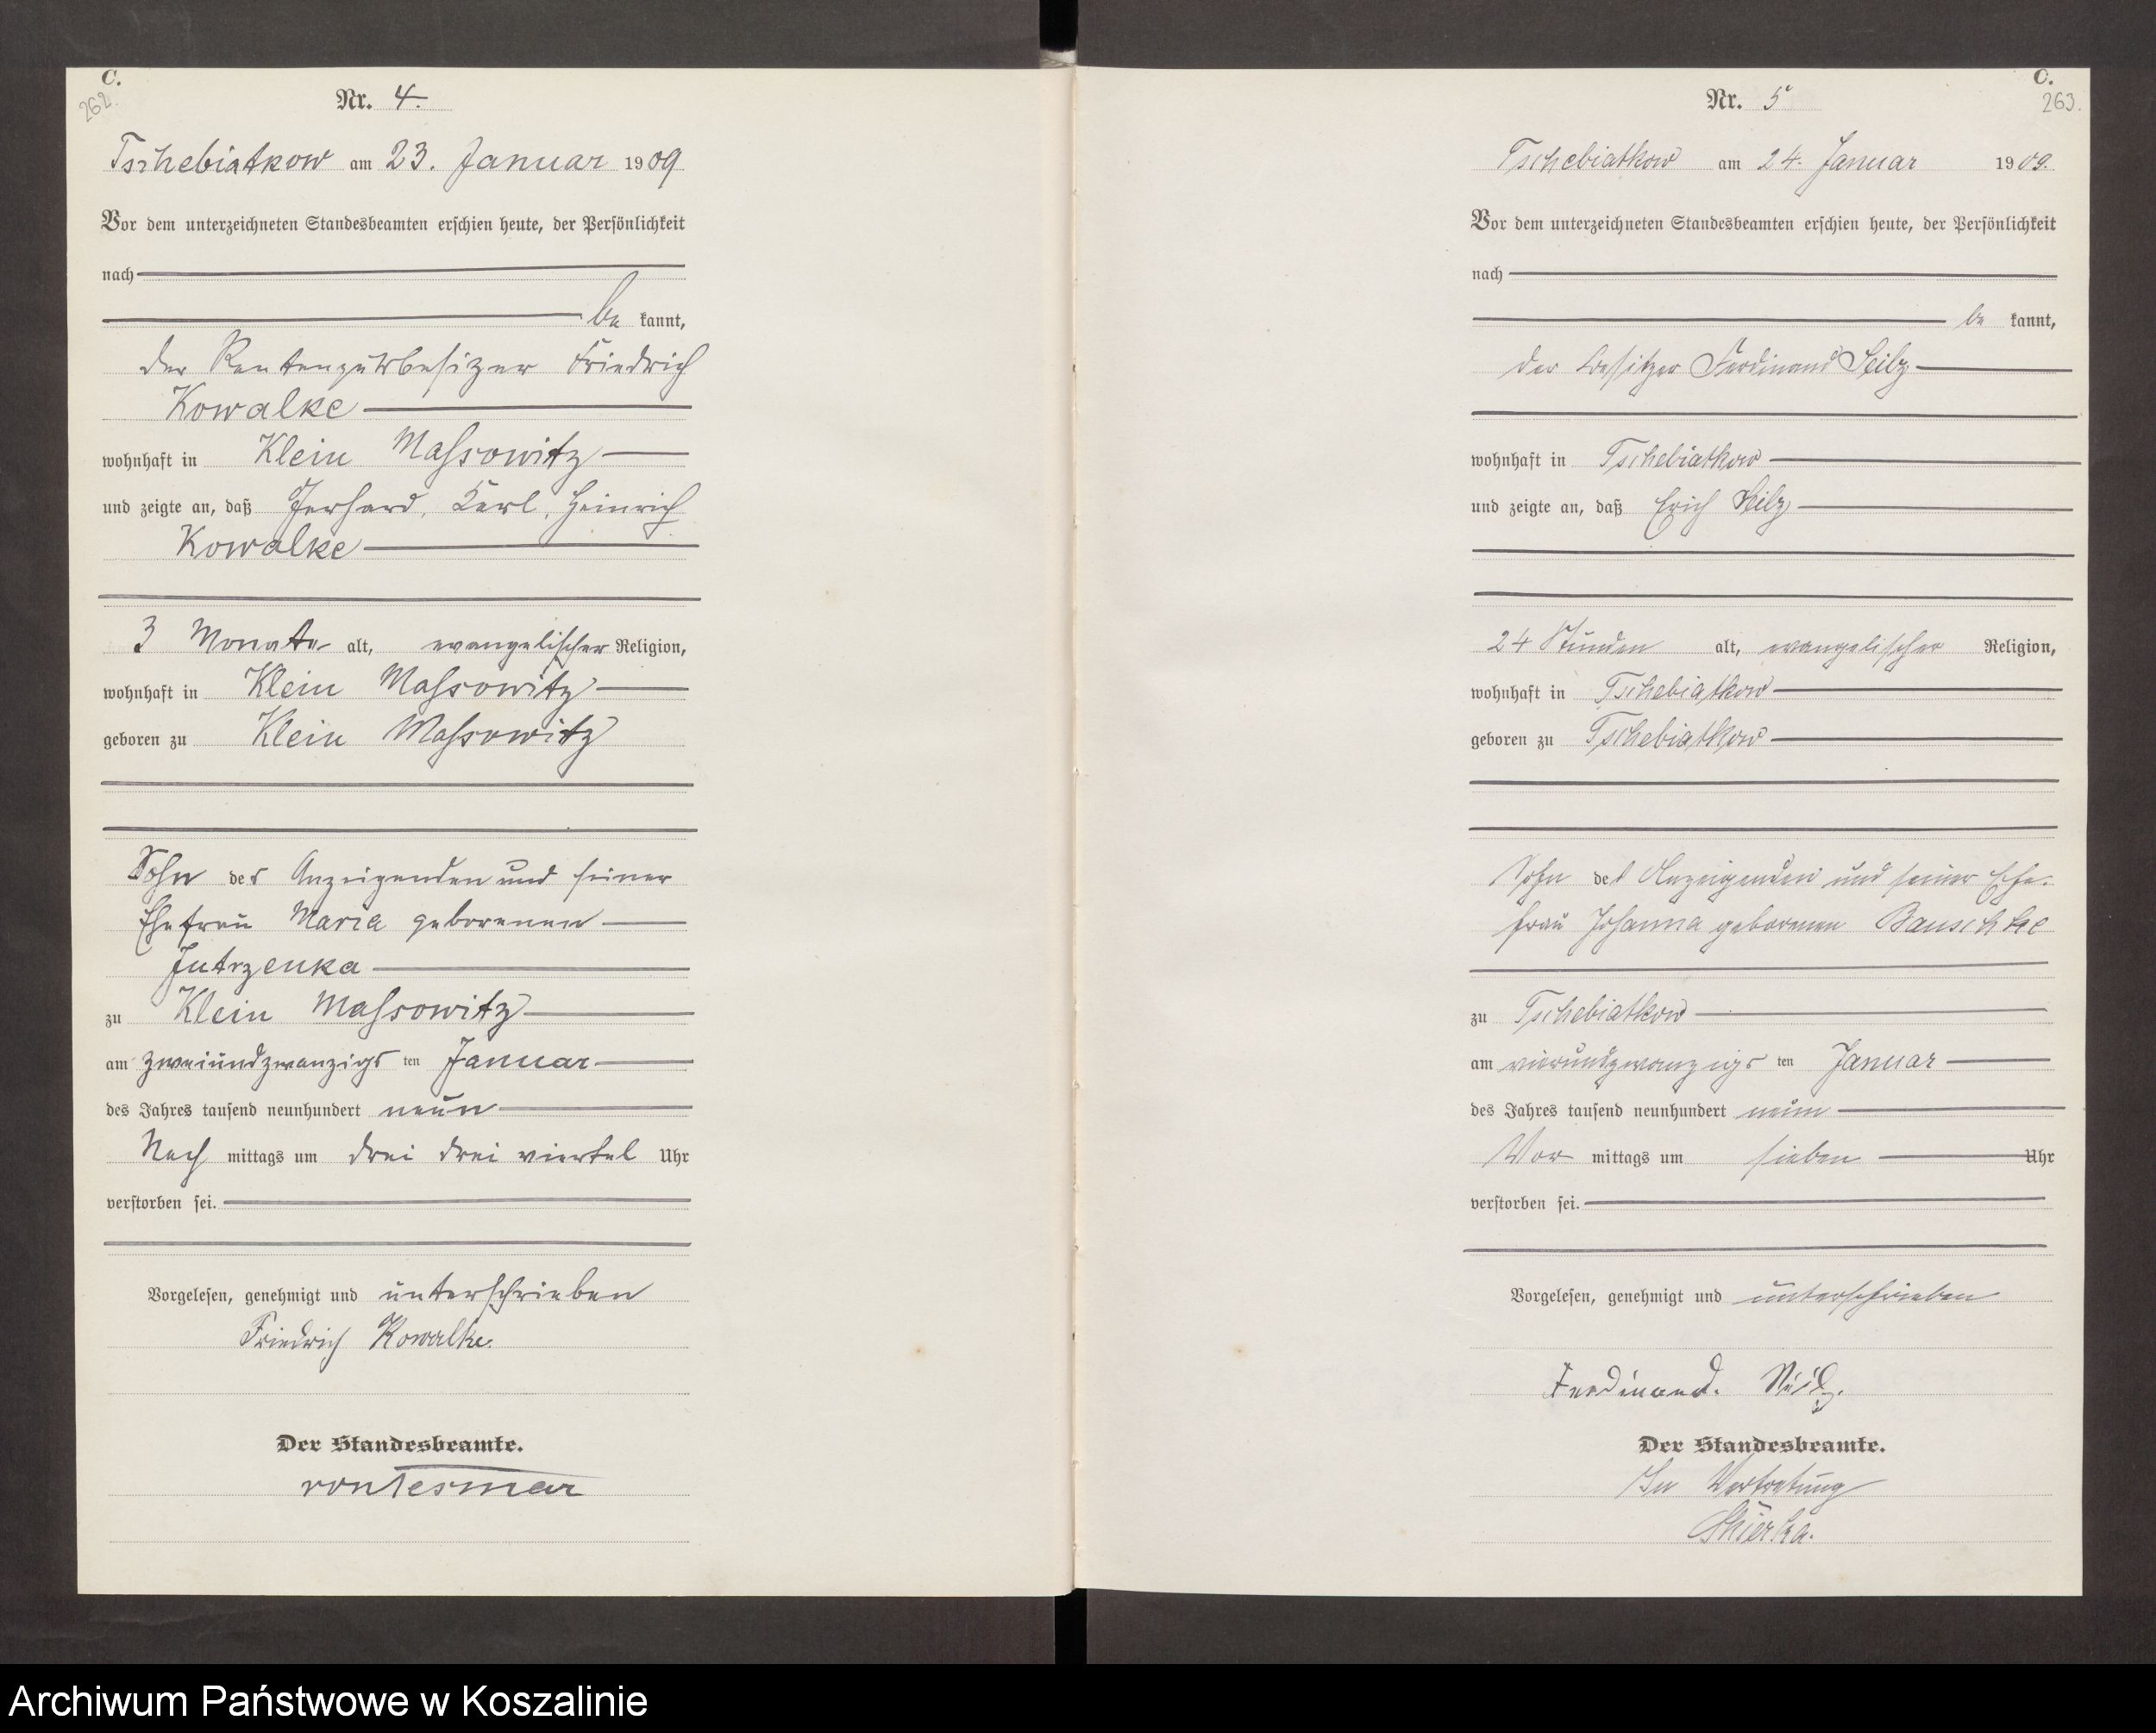 C.
262.
Nr. 4.
Tschebiatkow am 23. Januar 1909
Vor dem unterzeichneten Standesbeamten erschien heute, der Persönlichkeit
nach
be kannt,
der Rentengutsbesizer Friedrich
Kowalke
wohnhaft in Klein Massowitz
und zeigte an, daß Gerhard, Karl, Heinrich
Kowalke
3 Monate alt, evangelischer Religion,
wohnhaft in Klein Massowitz
geboren zu Klein Massowitz
Sohn des Anzeigenden und seiner
Ehefrau Maria geborenen
Jutrzenka
zu Klein Massowitz
am zweiundzwanzigsten Januar
des Jahres tausend neunhundert neun
Nach mittags um drei drei viertel Uhr
verstorben sei.
Vorgelesen, genehmigt und unterschrieben
Friedrich Kowalke.
Der Standesbeamte.
C.
263.
Nr. 5
Tschebiatkow am 24. Januar 1909.
Vor dem unterzeichneten Standesbeamten erschien heute, der Persönlichkeit
nach
be kannt,
der Besitzer Ferdinand Seilz
wohnhaft in Tschebiatkow
und zeigte an, daß Erich Seilz
24 Stunden alt, evangelischer Religion,
wohnhaft in Tschebiatkow
geboren zu Tschebiatkow
Sohn des Anzeigenden und seiner Ehe-
frau Johanna geborenen Bauschke
zu Tschebiatkow
am vierundzwanzigsten Januar
des Jahres tausend neunhundert neun
Vor mittags um sieben Uhr
verstorben sei.
Vorgelesen, genehmigt und unterschrieben
Ferdinand. Seilz.
Der Standesbeamte.
In Vertretung
Archiwum Państwowe w Koszalinie